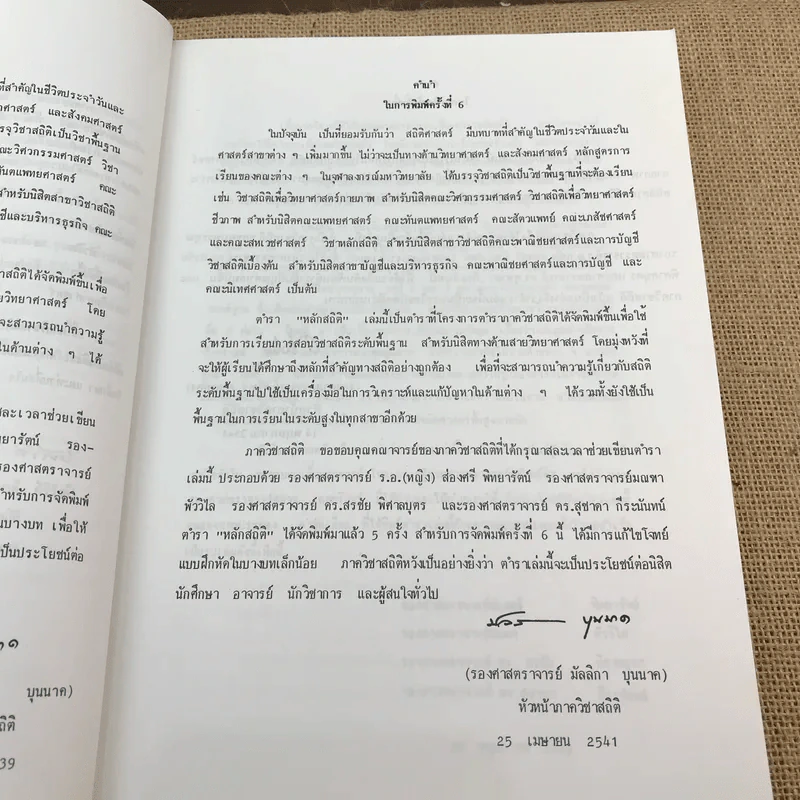 ที่สำคัญในชีวิตประจำวันและ
าศาสตร์ และสังคมศาสตร์
รจุวิชาสถิติเป็นวิชาพื้นฐาน
ณะวิศวกรรมศาสตร์ วิชา
ทันตแพทยศาสตร์ คณะ
หรับนิสิตสาขาวิชาสถิติ
ชีและบริหารธุรกิจ คณะ
าสถิติได้จัดพิมพ์ขึ้นเพื่อ
ยวิทยาศาสตร์ โดย
จะสามารถนำความรู้
ในด้านต่าง ๆ ได้
สละเวลาช่วยเขียน
ยารัตน์ รอง-
รองศาสตราจารย์
สำหรับการจัดพิมพ์
นบางบท เพื่อให้
เป็นประโยชน์ต่อ
บุนนาค)
ถิติ
39
คำนำ
ในการพิมพ์ครั้งที่ 6
ในปัจจุบัน เป็นที่ยอมรับกันว่า สถิติศาสตร์ มีบทบาทที่สำคัญในชีวิตประจำวันและใน
ศาสตร์สาขาต่าง ๆ เพิ่มมากขึ้น ไม่ว่าจะเป็นทางด้านวิทยาศาสตร์ และสังคมศาสตร์ หลักสูตรการ
เรียนของคณะต่าง ๆ ในจุฬาลงกรณ์มหาวิทยาลัย ได้บรรจุวิชาสถิติเป็นวิชาพื้นฐานที่จะต้องเรียน
เช่น วิชาสถิติเพื่อวิทยาศาสตร์กายภาพ สำหรับนิสิตคณะวิศวกรรมศาสตร์ วิชาสถิติเพื่อวิทยาศาสตร์
ชีวภาพ สำหรับนิสิตคณะแพทยศาสตร์ คณะทันตแพทยศาสตร์ คณะสัตวแพทย์ คณะเภสัชศาสตร์
และคณะสหเวชศาสตร์ วิชาหลักสถิติ สำหรับนิสิตสาขาวิชาสถิติคณะพาณิชยศาสตร์และการบัญชี
วิชาสถิติเบื้องต้น สำหรับนิสิตสาขาบัญชีและบริหารธุรกิจ คณะพาณิชยศาสตร์และการบัญชี และ
คณะนิเทศศาสตร์ เป็นต้น
ตำรา "หลักสถิติ" เล่มนี้เป็นตำราที่โครงการตำราภาควิชาสถิติได้จัดพิมพ์ขึ้นเพื่อใช้
สำหรับการเรียนการสอนวิชาสถิติระดับพื้นฐาน สำหรับนิสิตทางด้านสายวิทยาศาสตร์ โดยมุ่งหวังที่
จะให้ผู้เรียนได้ศึกษาถึงหลักที่สำคัญทางสถิติอย่างถูกต้อง เพื่อที่จะสามารถนำความรู้เกี่ยวกับสถิติ
ระดับพื้นฐานไปใช้เป็นเครื่องมือในการวิเคราะห์และแก้ปัญหาในด้านต่าง ๆ ได้รวมทั้งยังใช้เป็น
พื้นฐานในการเรียนในระดับสูงในทุกสาขาอีกด้วย
ภาควิชาสถิติ ขอขอบคุณคณาจารย์ของภาควิชาสถิติที่ได้กรุณาสละเวลาช่วยเขียนตำรา
เล่มนี้ ประกอบด้วย รองศาสตราจารย์ ร.อ.(หญิง) ส่องศรี พิทยารัตน์ รองศาสตราจารย์มณฑา
พัววิไล รองศาสตราจารย์ ดร.สรชัย พิศาลบุตร และรองศาสตราจารย์ ดร.สุชาดา กีระนันทน์
ตำรา "หลักสถิติ" ได้จัดพิมพ์มาแล้ว 5 ครั้ง สำหรับการจัดพิมพ์ครั้งที่ 6 นี้ ได้มีการแก้ไขโจทย์
แบบฝึกหัดในบางบทเล็กน้อย ภาควิชาสถิติหวังเป็นอย่างยิ่งว่า ตำราเล่มนี้จะเป็นประโยชน์ต่อนิสิต
นักศึกษา อาจารย์ นักวิชาการ และผู้สนใจทั่วไป
บุนนาค
(รองศาสตราจารย์ มัลลิกา บุนนาค)
หัวหน้าภาควิชาสถิติ
25 เมษายน 2541